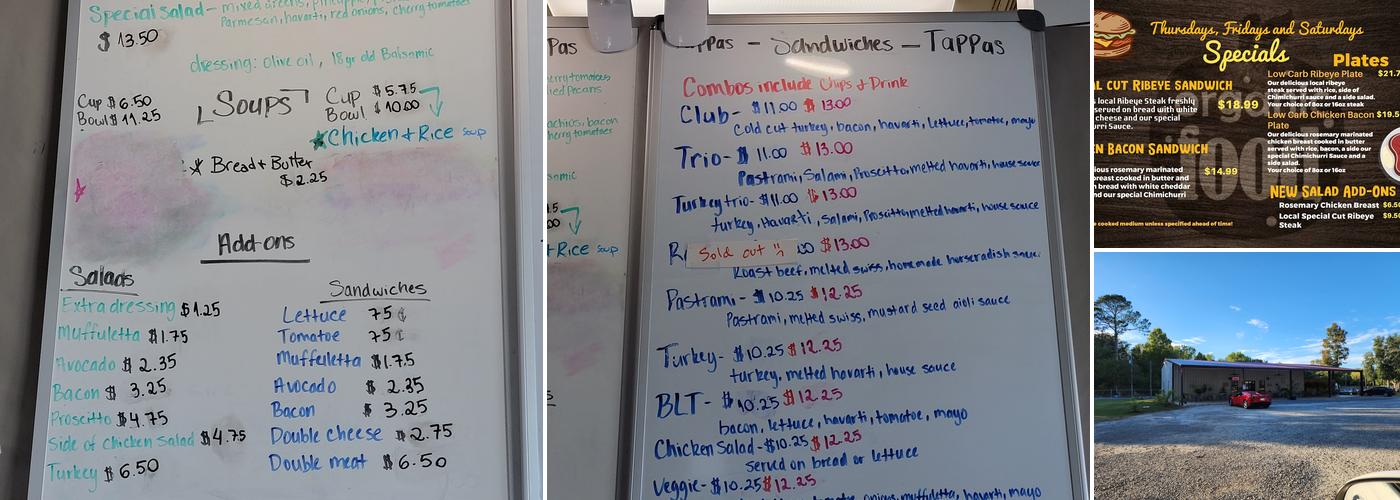 Special Salad - mixed greens, pineapple,
Parmesan, havarti, red onions, cherry tomatoes
$ 13.50
dressing: olive oil, 18yr old Balsamic
Soups
Cup $ 6.50
Bowl $ 11.25
Cup $ 5.75
Bowl $ 10.00
Chicken + Rice Soup
Bread + Butter
$ 2.25
Add-ons
Salads
Extra dressing $1.25
Muffuletta $1.75
Avocado $ 2.35
Bacon $ 3.25
Proscitto $4.75
Side of Chicken Salad $4.75
Turkey $ 6.50
Sandwiches
Lettuce 75¢
Tomatoe 75¢
Muffuletta $1.75
Avocado $ 2.35
Bacon $ 3.25
Double cheese $2.75
Double meat $6.50
Pas
erry tomatoes
ied Pecans
achios, bacon
herry tomatoes
+ Rice Soup
ppas - Sandwiches - Tappas
Combos include Chips + Drink
Club - $11.00 $ 13.00
Cold cut turkey, bacon, havarti, lettuce, tomatoe, mayo
Trio - $ 11.00 $13.00
Pastrami, Salami, Proscitto, melted havarti, house sauce
Turkey trio - $11.00 $13.00
turkey, Havarti, Salami, Proscitto, melted havarti, house sauce
R Sold out 00 $13.00
Roast beef, melted swiss, homemade horseradish sauce
Pastrami - $10.25 $12.25
Pastrami, melted swiss, mustard seed aioli sauce
Turkey - $10.25 $12.25
turkey, melted havarti, house sauce
BLT - $10.25 $12.25
bacon, lettuce, havarti, tomatoe, mayo
Chicken Salad - $10.25 $12.25
served on bread or lettuce
Veggie - $10.25 $12.25
onions, muffuletta, havarti, mayo
Thursdays, Fridays and Saturdays
Specials
L CUT RIBEYE SANDWICH
local Ribeye Steak freshly
served on bread with white
cheese and our special
urri Sauce.
$18.99
EN BACON SANDWICH
ious rosemary marinated
breast cooked in butter and
n bread with white cheddar
nd our special Chimichurri
$14.99
e cooked medium unless specified ahead of time!
Plates
Low Carb Ribeye Plate $21.
Our delicious local ribeye
steak served with rice, side of
Chimichurri sauce and a side salad.
Your choice of 8oz or 16oz steak
Low Carb Chicken Bacon $19.5
Plate
Our delicious rosemary marinated
chicken breast cooked in butter
served with rice, bacon, a side our
special Chimichurri Sauce and a
side salad.
Your choice of 8oz or 16oz
NEW SALAD ADD-ONS
Rosemary Chicken Breast $6.5
Local Special Cut Ribeye $9.50
Steak